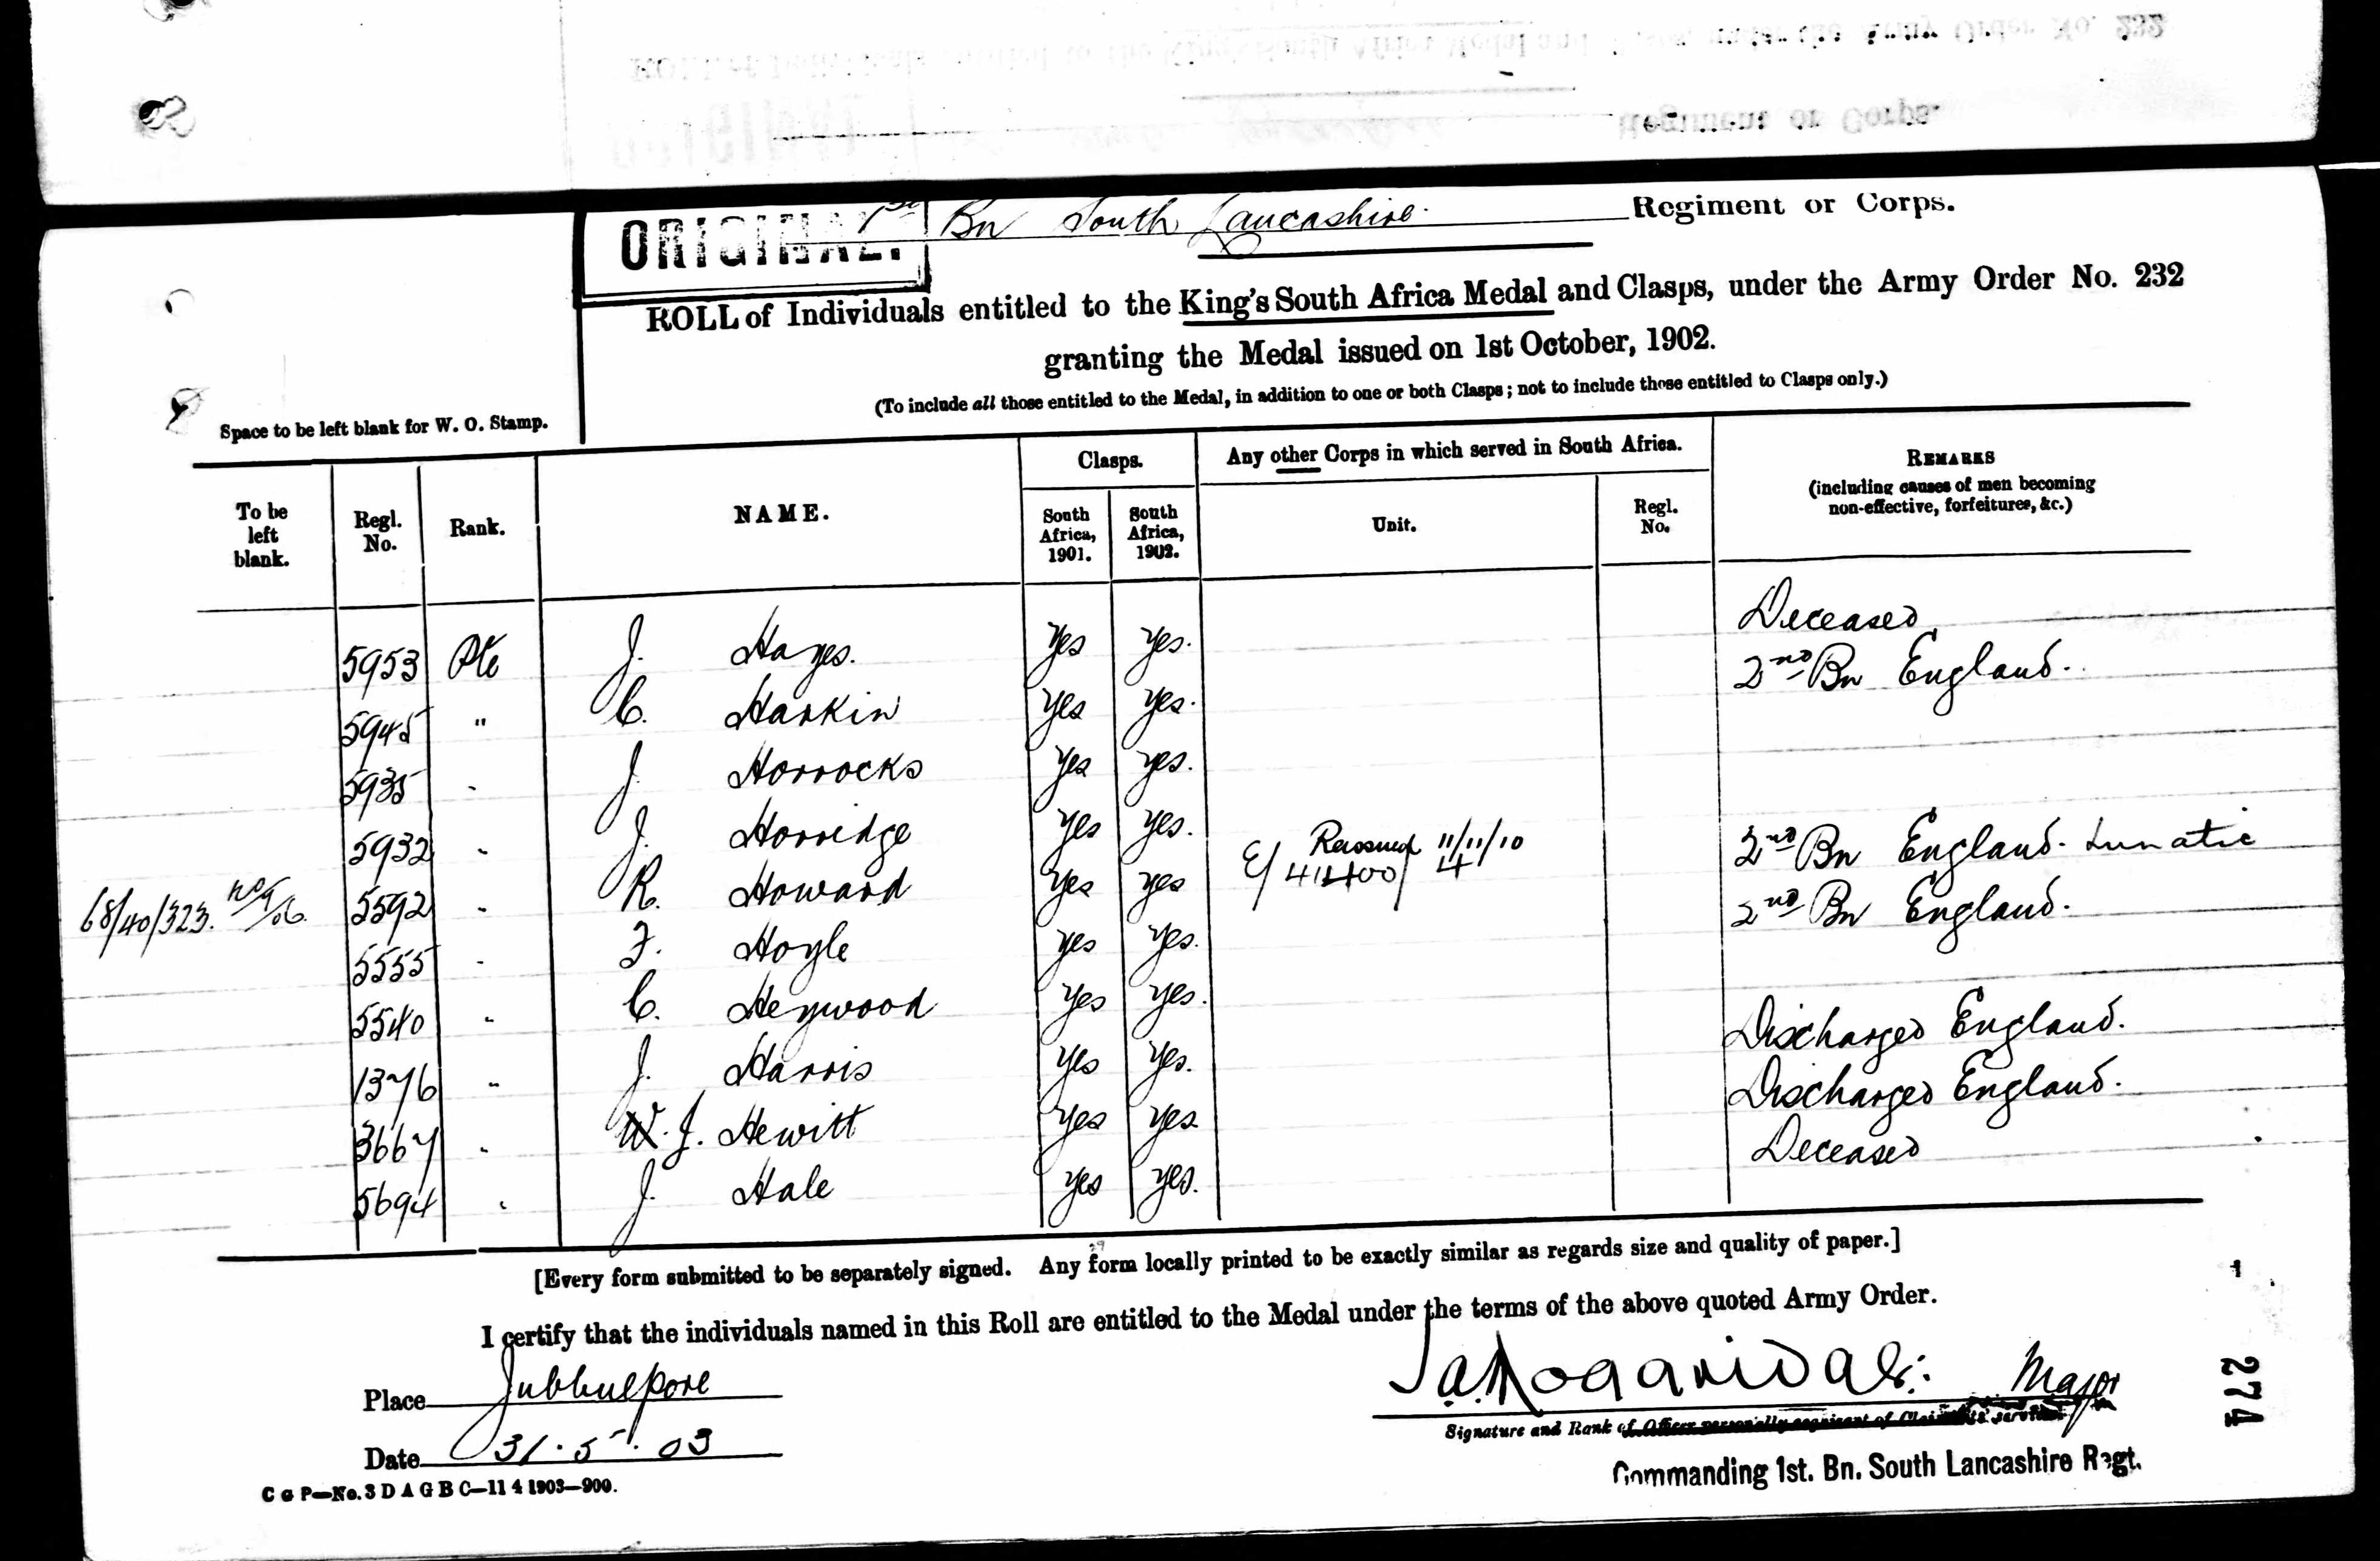 ORIGINAL.
1st Bn South Lancashire. Regiment or Corps.
ROLL of Individuals entitled to the King's South Africa Medal and Clasps, under the Army Order No. 232
granting the Medal issued on 1st October, 1902.
(To include all those entitled to the Medal, in addition to one or both Clasps; not to include those entitled to Clasps only.)
Space to be left blank for W. O. Stamp.
To be left blank. Regl. No. Rank. NAME. Clasps. South Africa, 1901. South Africa, 1902. Any other Corps in which served in South Africa. Unit. Regl. No. REMARKS (including causes of men becoming non-effective, forfeitures, &c.)
5953 Pte J. Hayes. Yes Yes. Deceased
5945 " C. Harkin Yes Yes. 2nd Bn England.
5935 " J. Horrocks Yes Yes.
5932 " J. Horridge Yes Yes.
68/40/323. 5592 " R. Howard Yes Yes E/ 11/11/10 2nd Bn England. Lunatic
5555 " F. Hoyle Yes Yes. 2nd Bn England.
5540 " C. Heywood Yes Yes.
1376 " J. Harris Yes Yes. Discharged England.
3667 " W. J. Hewitt Yes Yes. Discharged England.
5694 " J. Hale Yes Yes. Deceased
[Every form submitted to be separately signed. Any form locally printed to be exactly similar as regards size and quality of paper.]
I certify that the individuals named in this Roll are entitled to the Medal under the terms of the above quoted Army Order.
Place Jubbulpore
Major
Signature and Rank of Officer personally cognisant of Claimants' services
Date 31.5.03
Commanding 1st. Bn. South Lancashire Regt.
C G P—No. 3 D A G B C—11 4 1903—900.
274